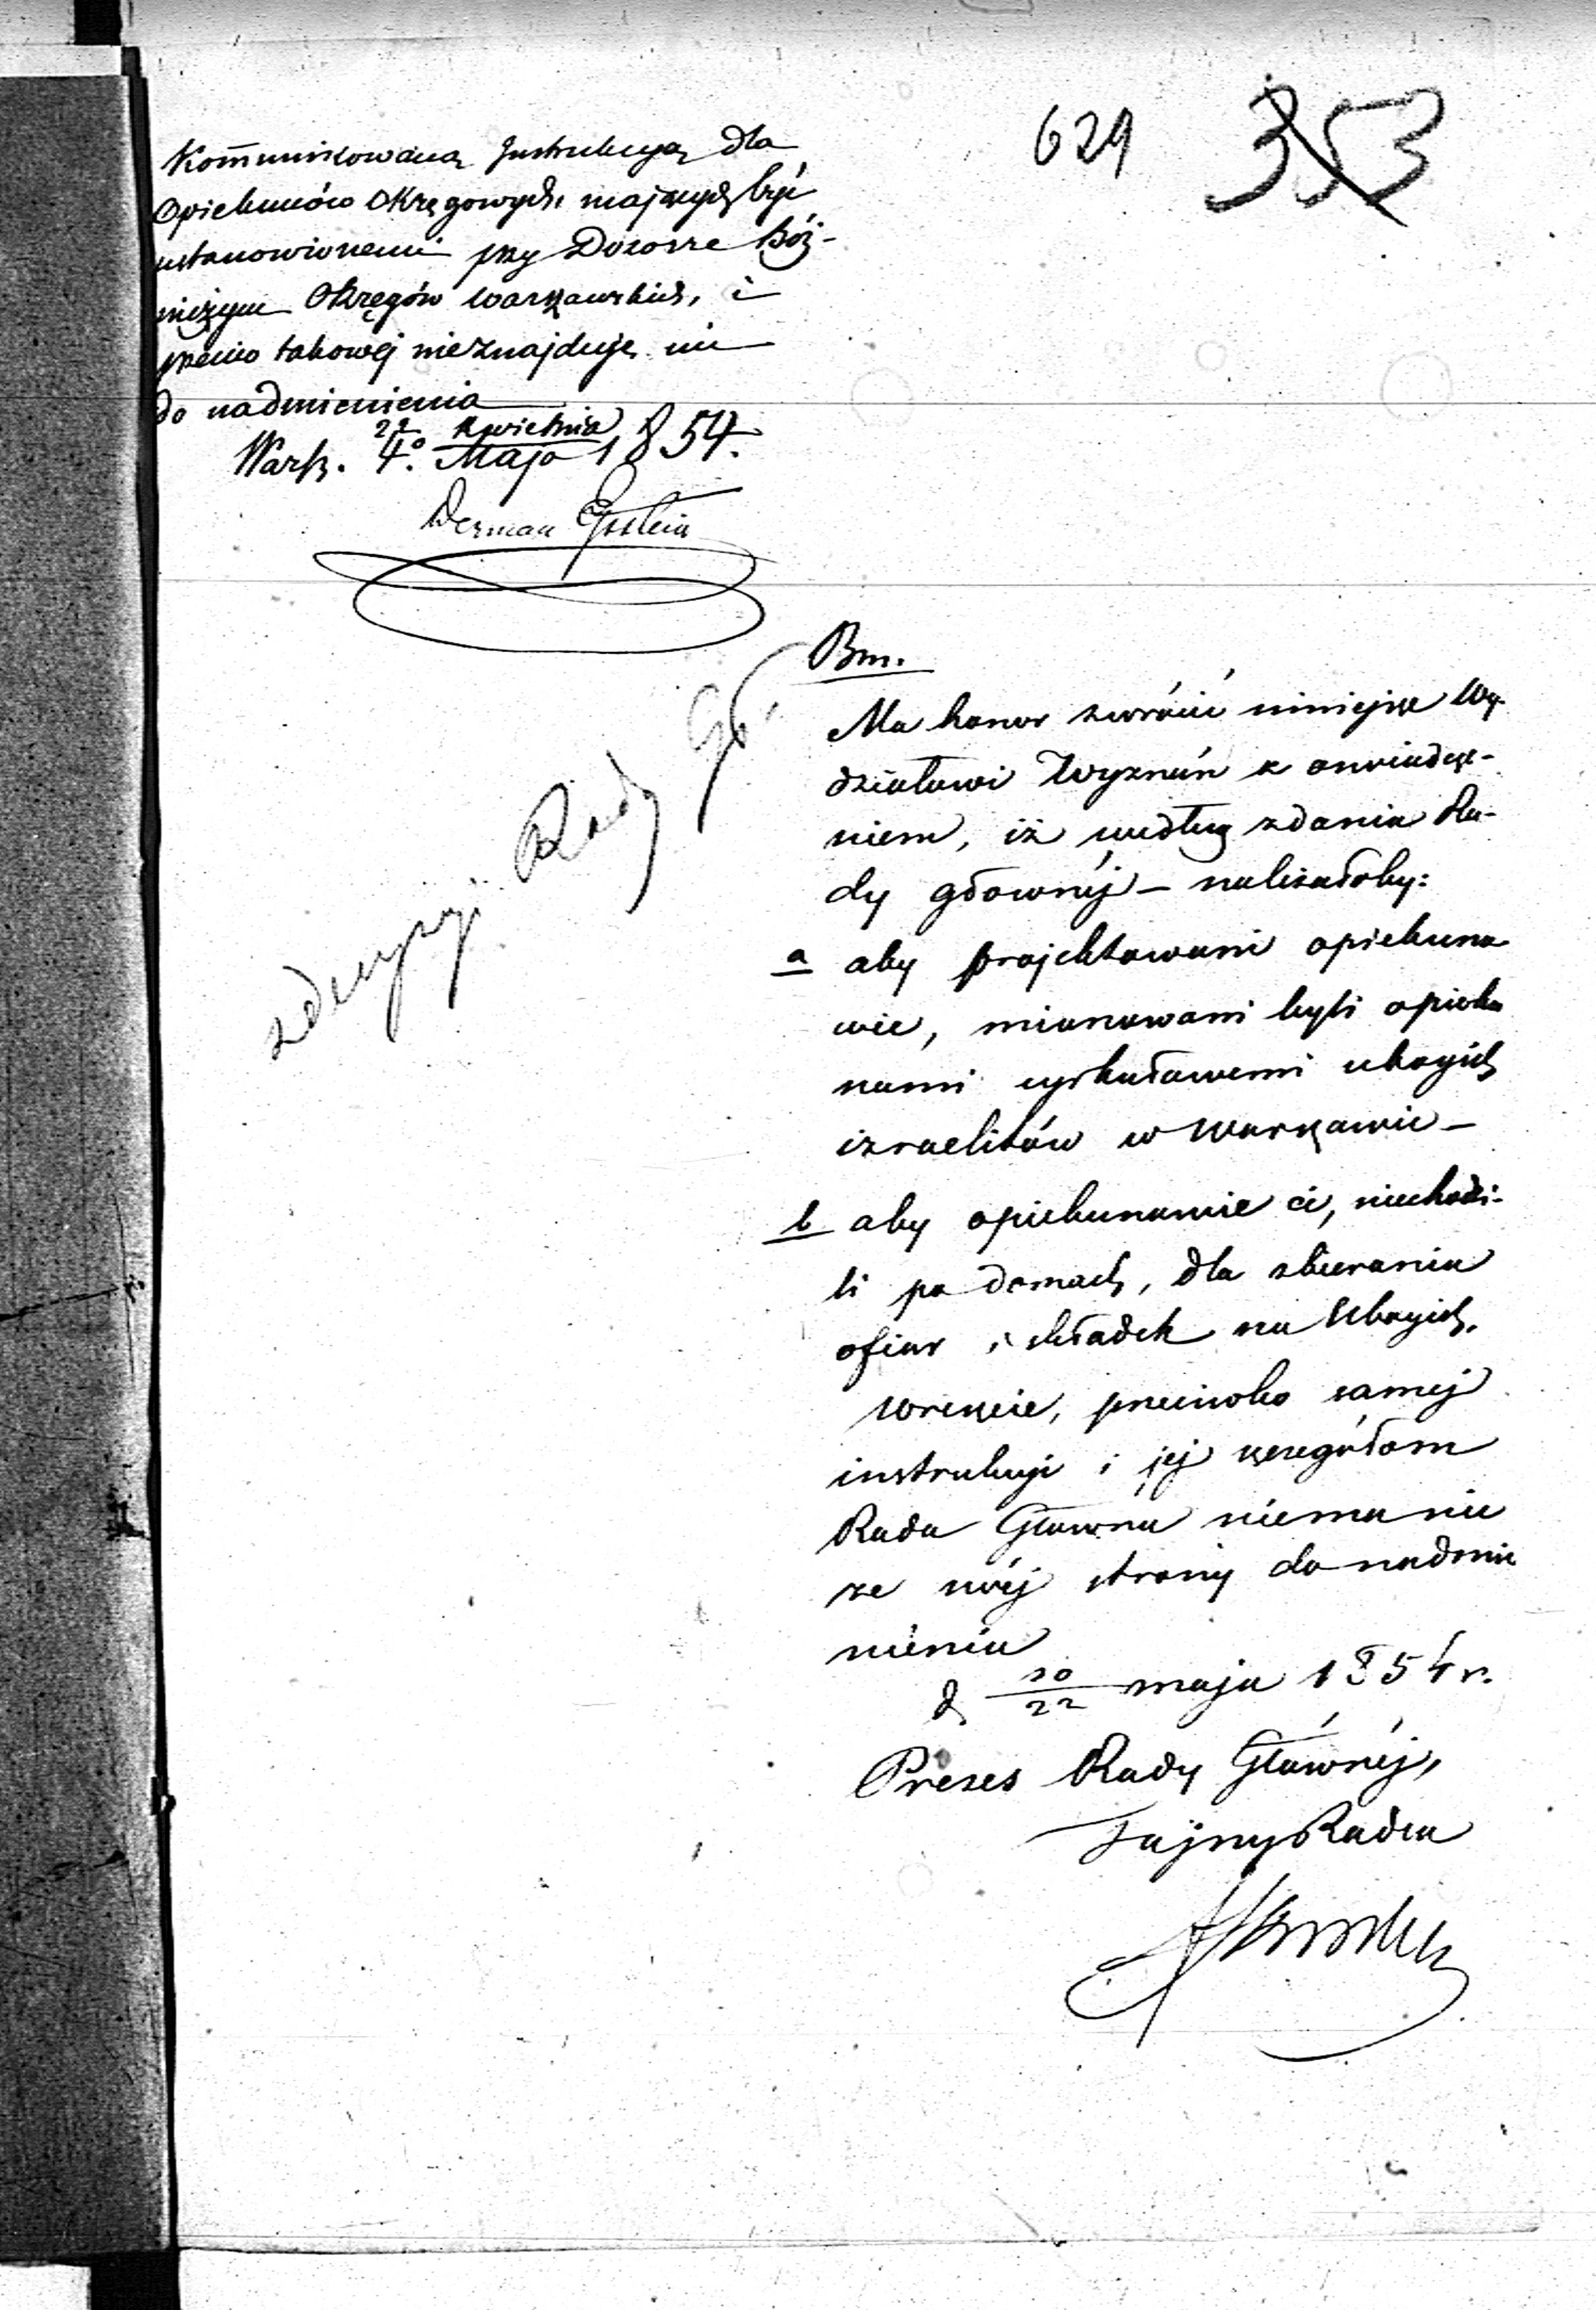 629 353
Kommunikowaną Instrukcyą dla
Opiekunów Okręgowych, mających być
ustanowionemi przy Dozorze Bóż-
niczym Okręgów Warszawskich, i
przeciw takowéj nieznajduję nic
do nadmienienia
Warsz. 22/4. Kwietnia/Maja 1854.
Herman Epstein
z decyzyi Rady Gł
Bm.
Ma honor zwrócić niniejsze Wy-
działowi Wyznań z oświadcze-
niem, iż według zdania Ra-
dy głównéj – należałoby:
a aby projektowani opieku­no-
wie, mianowani byli opieku
nami cyrkułowemi ubogich
izraelitów w Warszawie –
b aby opiekunowie ci, niechodzi-
li po domach, dla zbierania
ofiar i składek na Ubogich.
Wreszcie, przeciwko samej
instrukcyi i jéj szczegółom
Rada Główna niema nic
ze swéj strony do nadmie
nienia
d. 10/22 maja 1854 r.
Prezes Rady Głównéj,
Tajny Radca